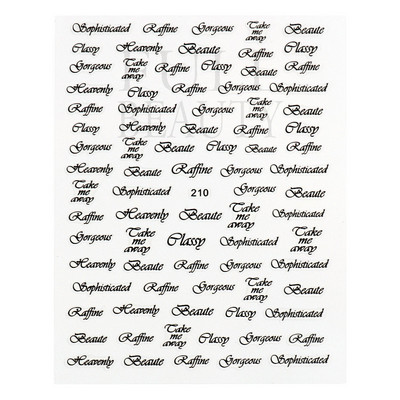 Sophisticated Raffine Gorgeous Take me away Raffine
Classy Heavenly Beaute Classy Beaute
Gorgeous Take me away Raffine Classy Heavenly Raffine
Heavenly Classy Raffine Gorgeous Beaute
Raffine Sophisticated Gorgeous Take me away Beaute
Classy Heavenly Beaute Raffine Classy
Gorgeous Take me away Raffine Classy Beaute Raffine
Heavenly Beaute Raffine Gorgeous Beaute
Take me away Sophisticated 210 Gorgeous Beaute
Raffine Heavenly Beaute Take me away Sophisticated
Gorgeous Take me away Classy Take me away Raffine
Heavenly Beaute Raffine Gorgeous Heavenly Beaute
Sophisticated Raffine Gorgeous Take me away Sophisticated
Beaute Raffine Take me away Beaute Gorgeous Raffine
Heavenly Beaute Raffine Gorgeous Sophisticated